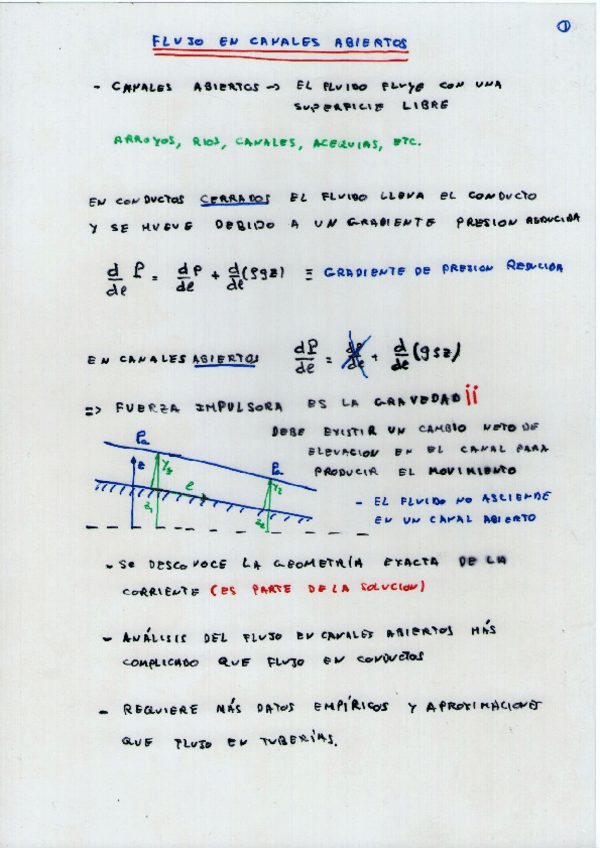 ①
FLUJO EN CANALES ABIERTOS
- CANALES ABIERTOS → EL FLUIDO FLUYE CON UNA
SUPERFICIE LIBRE
ARROYOS, RIOS, CANALES, ACEQUIAS, ETC.
EN CONDUCTOS CERRADOS EL FLUIDO LLENA EL CONDUCTO
Y SE MUEVE DEBIDO A UN GRADIENTE PRESION REDUCIDA
d/de P = dp/de + d/de (ρgz) ≡ GRADIENTE DE PRESION REDUCIDA
EN CANALES ABIERTOS dP/de = dp/de + d/de (ρgz)
=> FUERZA IMPULSORA ES LA GRAVEDAD ¡¡
DEBE EXISTIR UN CAMBIO NETO DE
ELEVACION EN EL CANAL PARA
PRODUCIR EL MOVIMIENTO
Pa
Pa
z
y1
e
y2
z1
z2
- EL FLUIDO NO ASCIENDE
EN UN CANAL ABIERTO
- SE DESCONOCE LA GEOMETRÍA EXACTA DE LA
CORRIENTE (ES PARTE DE LA SOLUCION)
- ANÁLISIS DEL FLUJO EN CANALES ABIERTOS MÁS
COMPLICADO QUE FLUJO EN CONDUCTOS
- REQUIERE MÁS DATOS EMPÍRICOS Y APROXIMACIONES
QUE FLUJO EN TUBERÍAS.